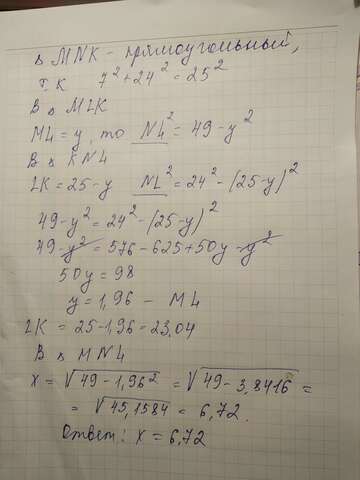 △ MNK - прямоугольный,
т.к 7² + 24² = 25²
В △ MLK
ML = y, то NL² = 49 - y²
В △ KNL
LK = 25 - y NL² = 24² - (25 - y)²
49 - y² = 24² - (25 - y)²
49 - y² = 576 - 625 + 50y - y²
50y = 98
y = 1,96 - ML
LK = 25 - 1,96 = 23,04
В △ MNL
x = √49 - 1,96² = √49 - 3,8416 =
= √45,1584 = 6,72.
Ответ: x = 6,72